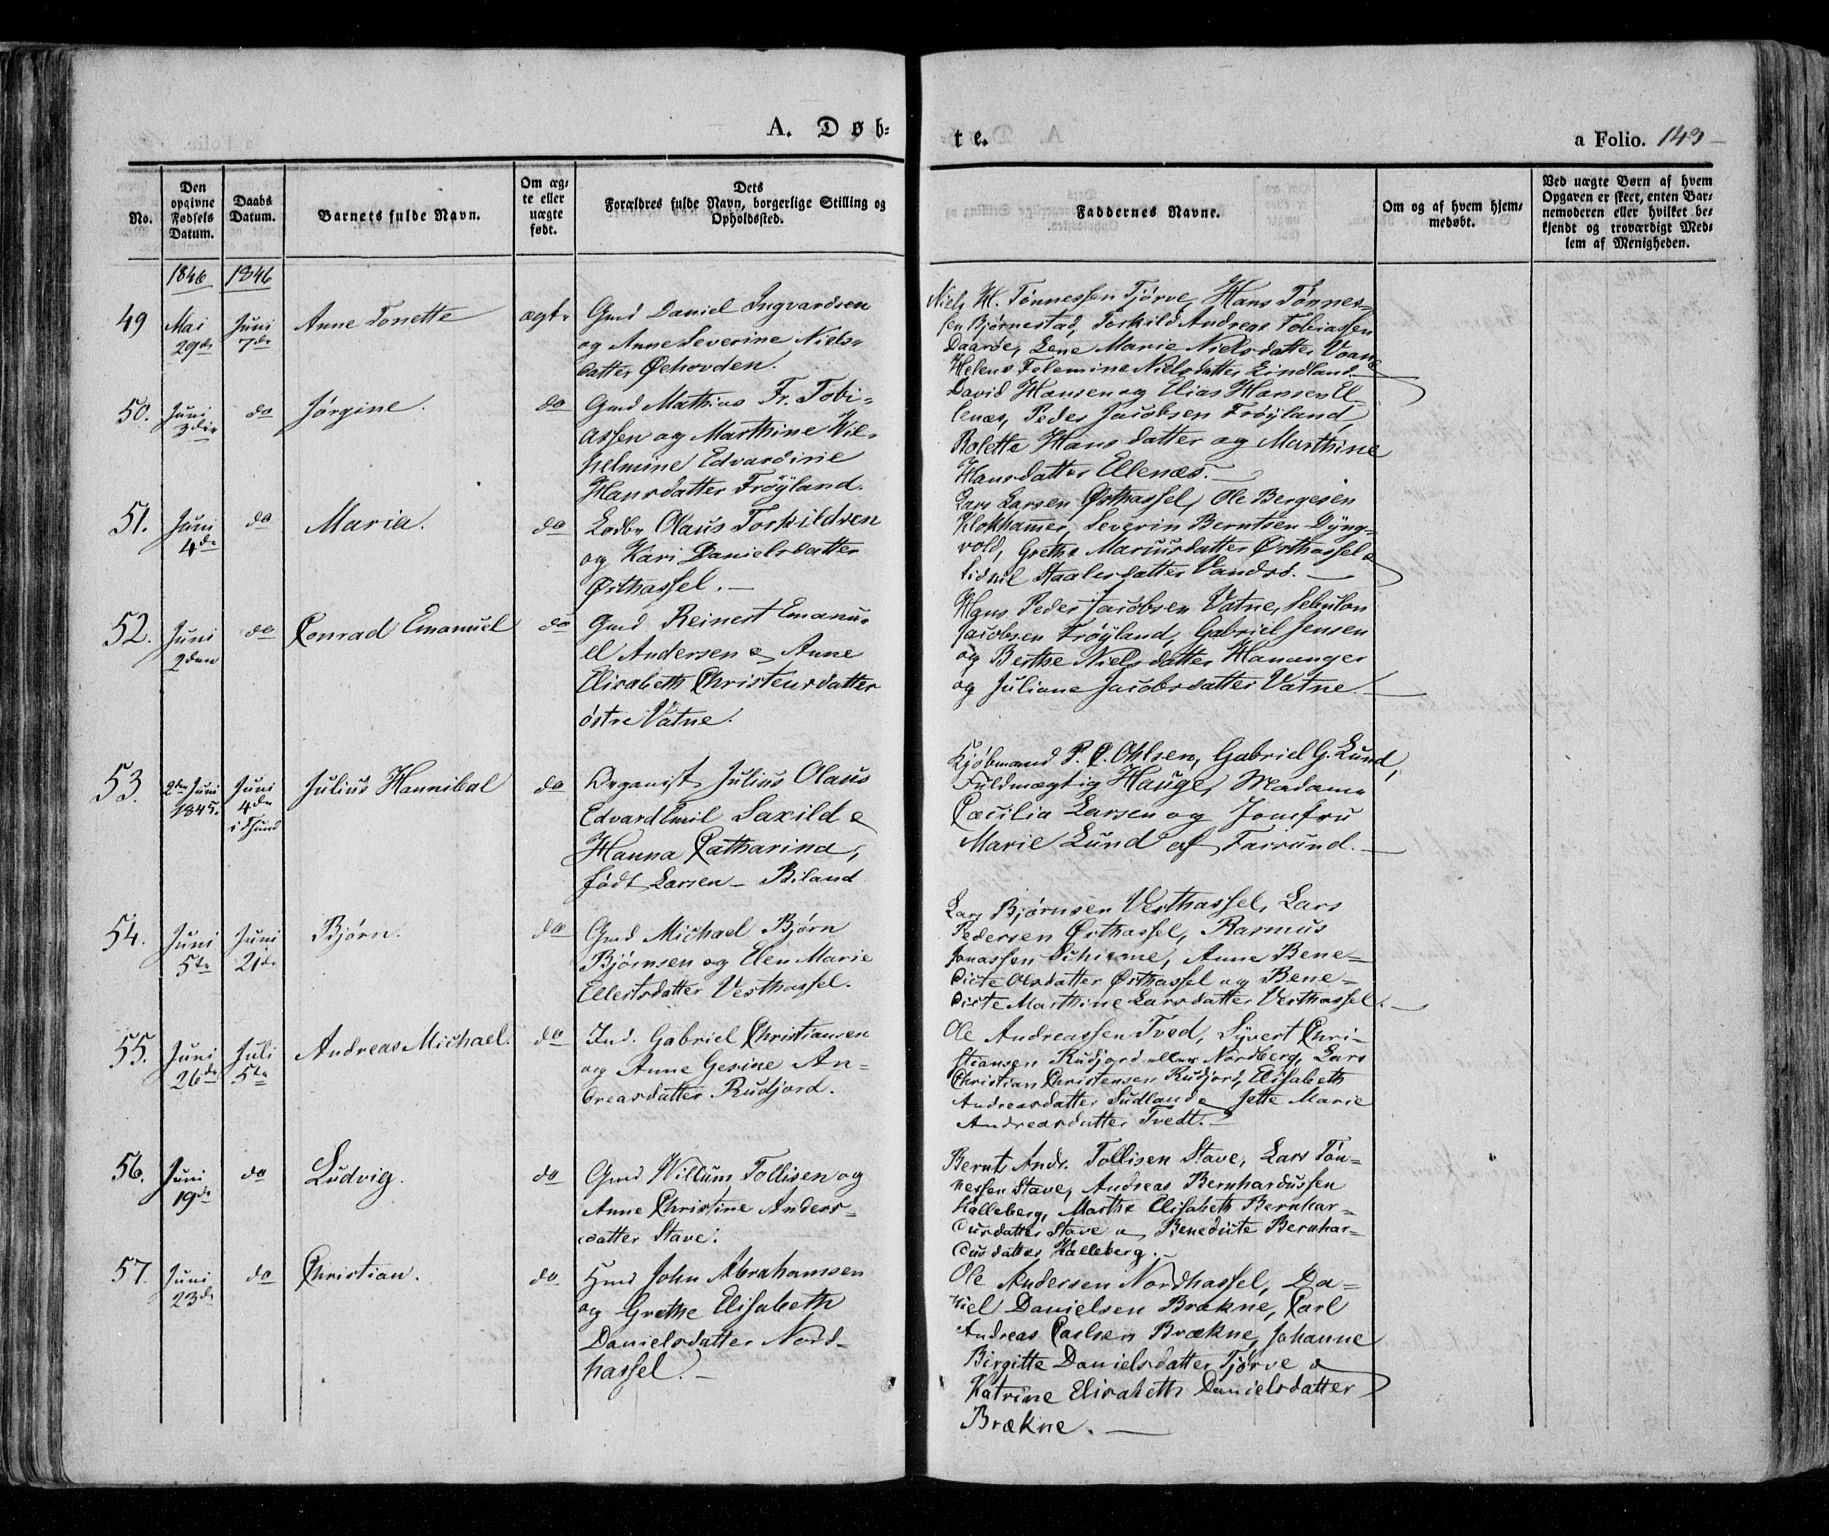 A. Døb=
te.
a Folio. 143
No.
Den opgivne Fødsels Datum.
Daabs Datum.
Barnets fulde Navn.
Om ægte eller uægte født.
Dets Forældres fulde Navn, borgerlige Stilling og Opholdssted.
Faddernes Navne.
Om og af hvem hjemmedøbt.
Ved uægte Børn af hvem Opgaven er skeet, enten Barnemoderen eller hvilket bekjendt og troværdigt Medlem af Menigheden.
1846 1846
49 Mai 29de Juni 7de Anne Tonette ægte
Gmd Daniel Ingvardsen
og Anne Severine Niels-
datter Øehovden.
Niels H. Tønnessen Tjørve, Hans Tønnes-
sen Bjørnestad, Torkild Andreas Tobiassen
Daarøe, Lene Marie Nielsdatter Vaane
Helene Felemine Nielsdatter Lindland.
50. Juni 3die do Jørgine. do
Gmd Mathias Fr. Tobi-
assen og Marthine Wil-
helmine Edvardine
Hansdatter Frøyland.
David Hansen og Elias Hansen El-
lenæs, Peder Jacobsen Frøyland,
Bolette Hansdatter og Marthine
Hansdatter Ellenæs.
51. Juni 4de do Maria. do
Lodbr Olaus Torkildsen
og Kari Danielsdatter
Østhassel.
Lars Larsen Østhassel, Ole Bergesen
Klokhamer, Severin Berntsen Dyng-
vold, Grethe Mariusdatter Østhassel &
Sidsil Staalesdatter Vandsø.
52. Juni 2den do Conrad Emanuel do
Gmd Reinert Emanu-
el Andersen & Anne
Elisabeth Christensdatter
østre Vatne.
Hans Peder Jacobsen Vatne, Sebulon
Jacobsen Frøyland, Gabriel Jensen
og Berthe Nielsdatter Hananger
og Juliane Jacobsdatter Vatne.
53. 2de Juni 1845. Juni 4de i Lund Julius Hannibal do
Organist Julius Olaus
Edvard Emil Saxild &
Hanna Catharina,
født Larsen - Biland
Kjøbmand P. C. Ohlsen, Gabriel G. Lund,
Fuldmægtig Hauge, Madame
Cæcilia Larsen og Jomfru
Marie Lund af Farsund.
54. Juni 5te Juni 21de Bjørn. do
Gmd Michael Bjørn
Bjørnsen og Elen Marie
Ellertsdatter Vesthassel.
Lars Bjørnsen Vesthassel, Lars
Pedersen Østhassel, Rasmus
Jonassen Schieme, Anne Bene-
dicte Olsdatter Østhassel og Bene-
dicte Marthine Larsdatter Vesthassel.
55. Juni 26de Juli 5te Andreas Michael. do
Ind. Gabriel Christiansen
og Anne Gesine An-
dreasdatter Rudjord.
Ole Andreassen Tved, Syvert Chri-
stiansen Rudjord eller Nordberg, Lars
Christian Christensen Rudjord, Elisabeth
Andreasdatter Sudland & Jette Marie
Andreasdatter Tvedt.
56. Juni 19de do Ludvig. do
Gmd Willum Tollisen og
Anne Christine Anders-
datter Stave.
Bernt Andr. Tollisen Stave, Lars Tøn-
nessen Stave, Andreas Bernhardussen
Halleberg, Marthe Elisabeth Bernhar-
dusdatter Stave & Benedicte Bernhar-
dusdatter Halleberg.
57. Juni 23de do Christian. do
Hmd John Abrahamsen
og Grethe Elisabeth
Danielsdatter Nord-
hassel.
Ole Andersen Nordhassel, Da-
niel Danielsen Brækne, Carl
Andreas Carlsen Brækne, Johanne
Birgitte Danielsdatter Tjørve &
Katrine Elisabeth Danielsdatter
Brækne.